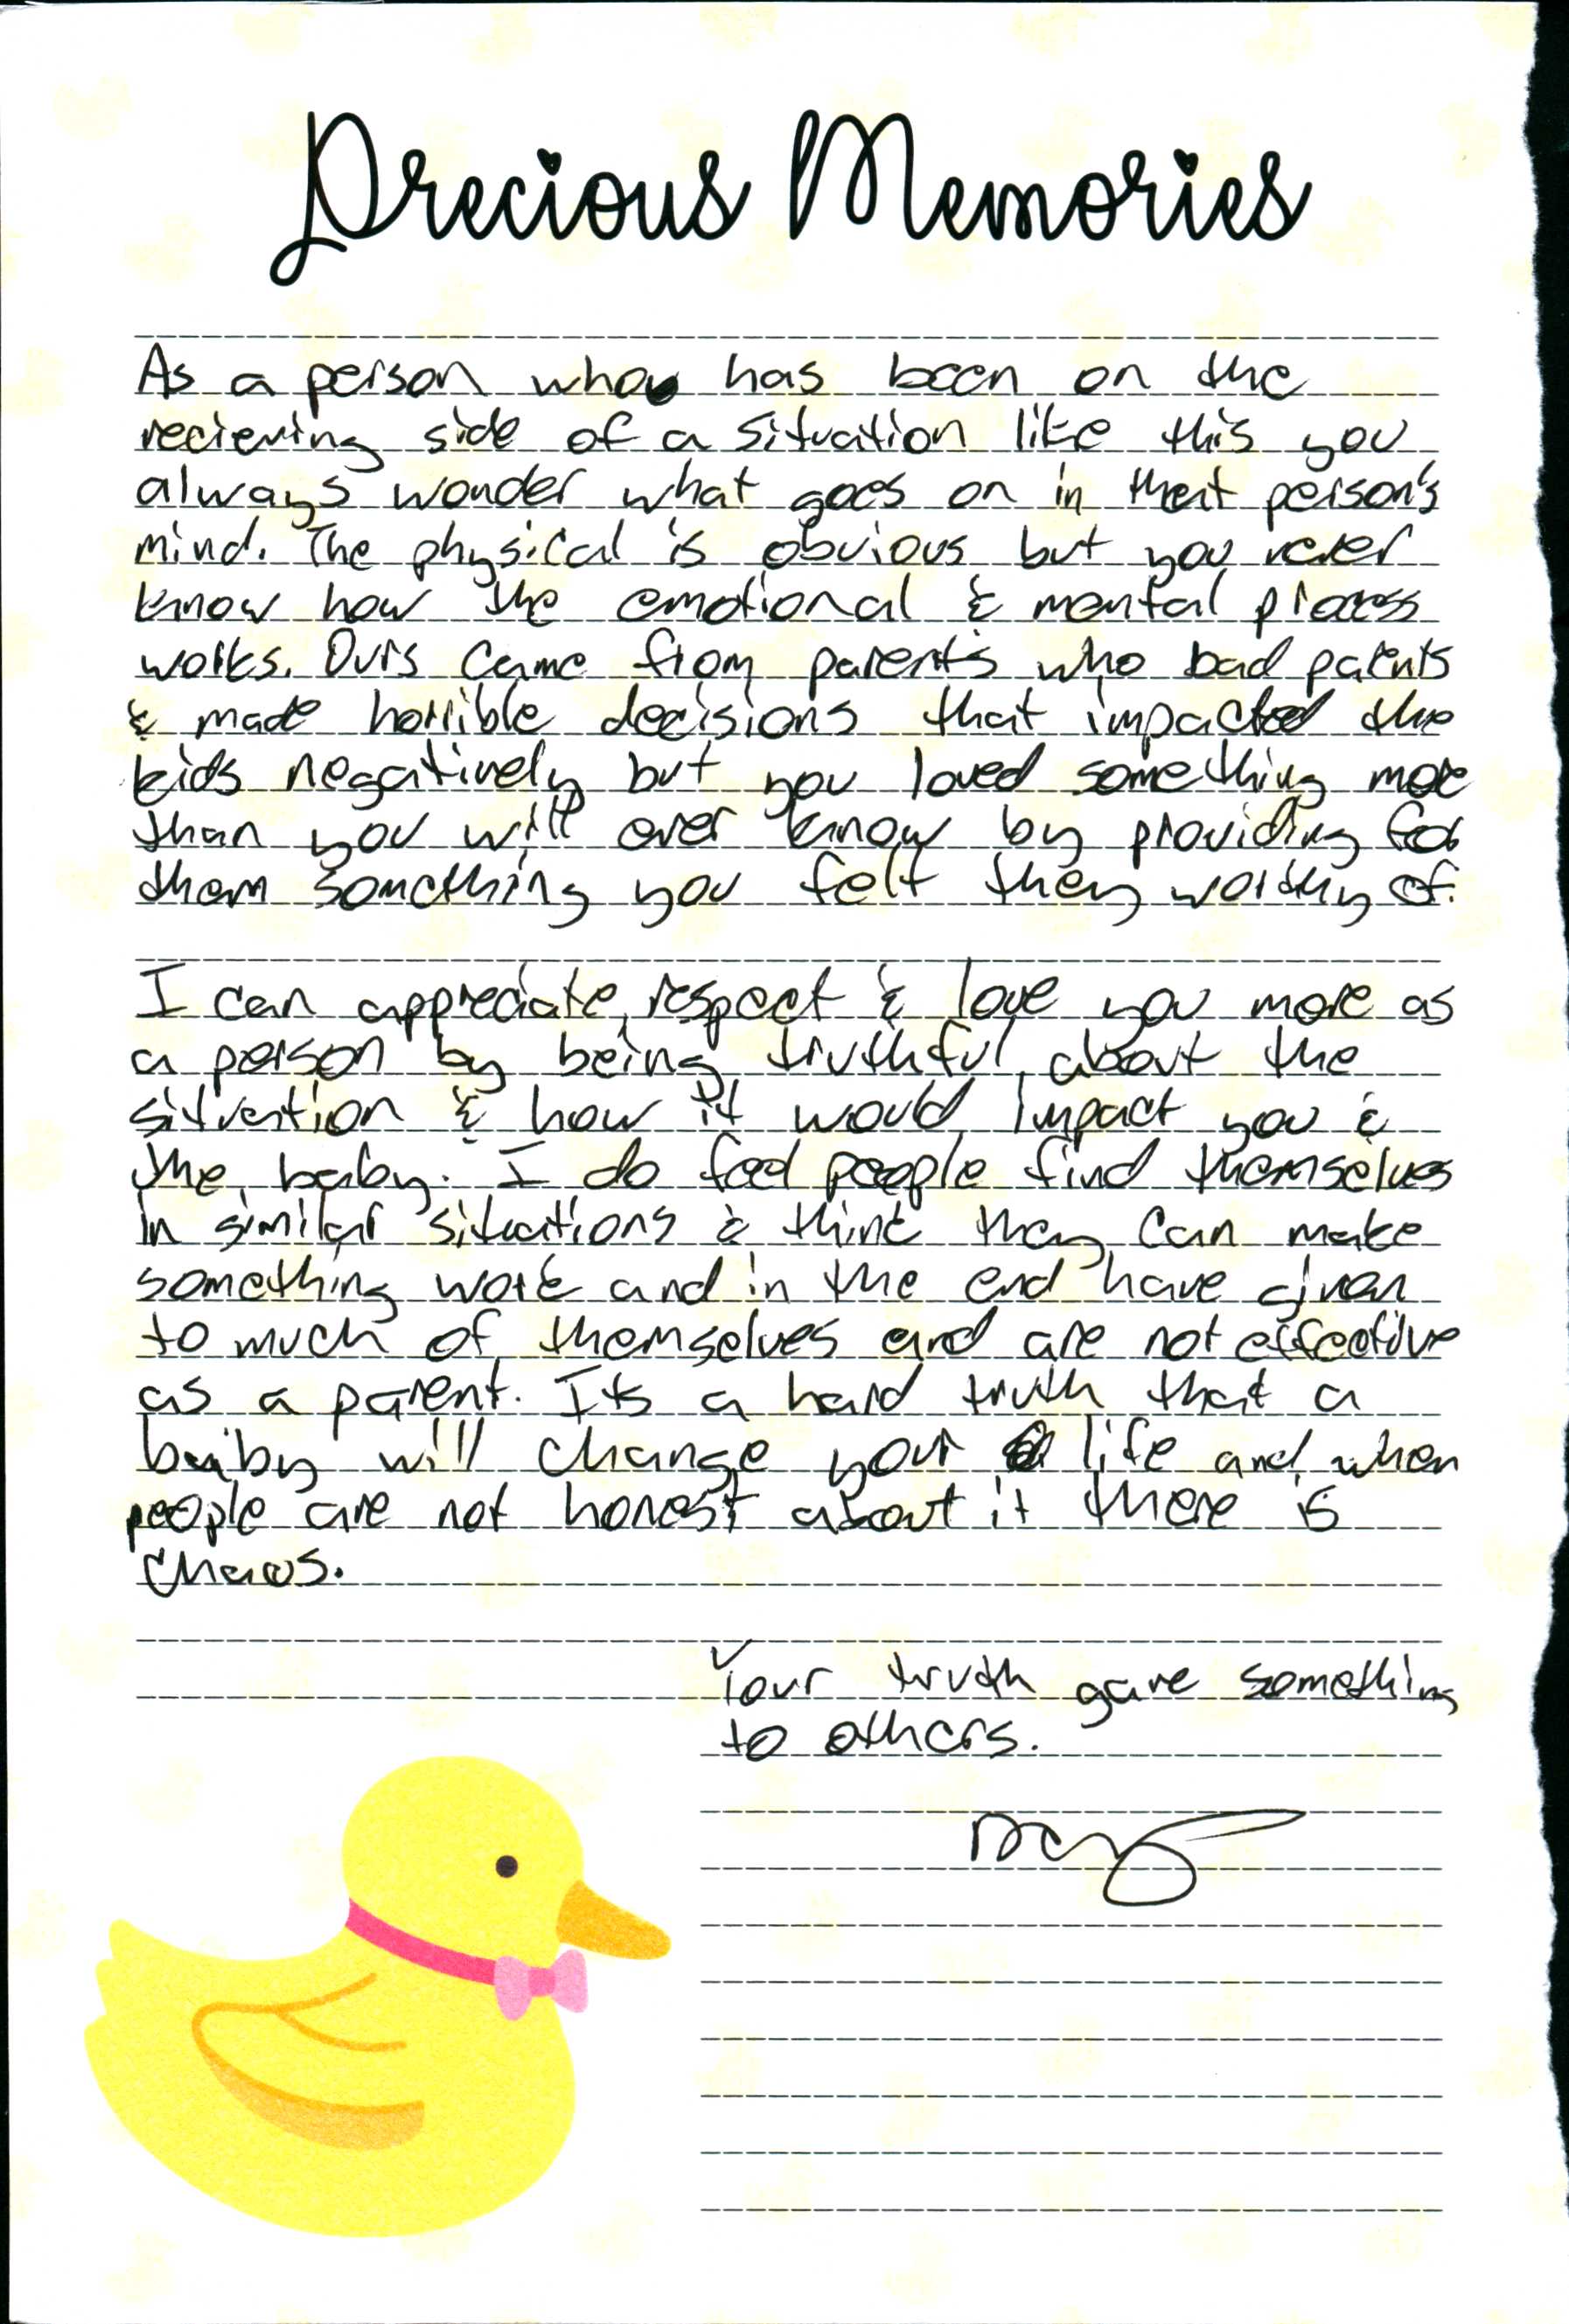 Precious Memories
As a person who has been on the
recieving side of a situation like this you
always wonder what goes on in that person's
mind. The physical is obvious but you never
know how the emotional & mental process
works. Ours came from parents who bad parents
& made horrible decisions that impacted the
kids negatively but you loved something more
than you will ever know by providing for
them something you felt they worthy of.
I can appreciate, respect & love you more as
a person by being truthful about the
situation & how it would impact you &
the baby. I do feel people find themselves
in similar situations & think they can make
something work and in the end have given
to much of themselves and are not effective
as a parent. Its a hard truth that a
baby will change your life and when
people are not honest about it there is
chaos.
Your truth gave something
to others.